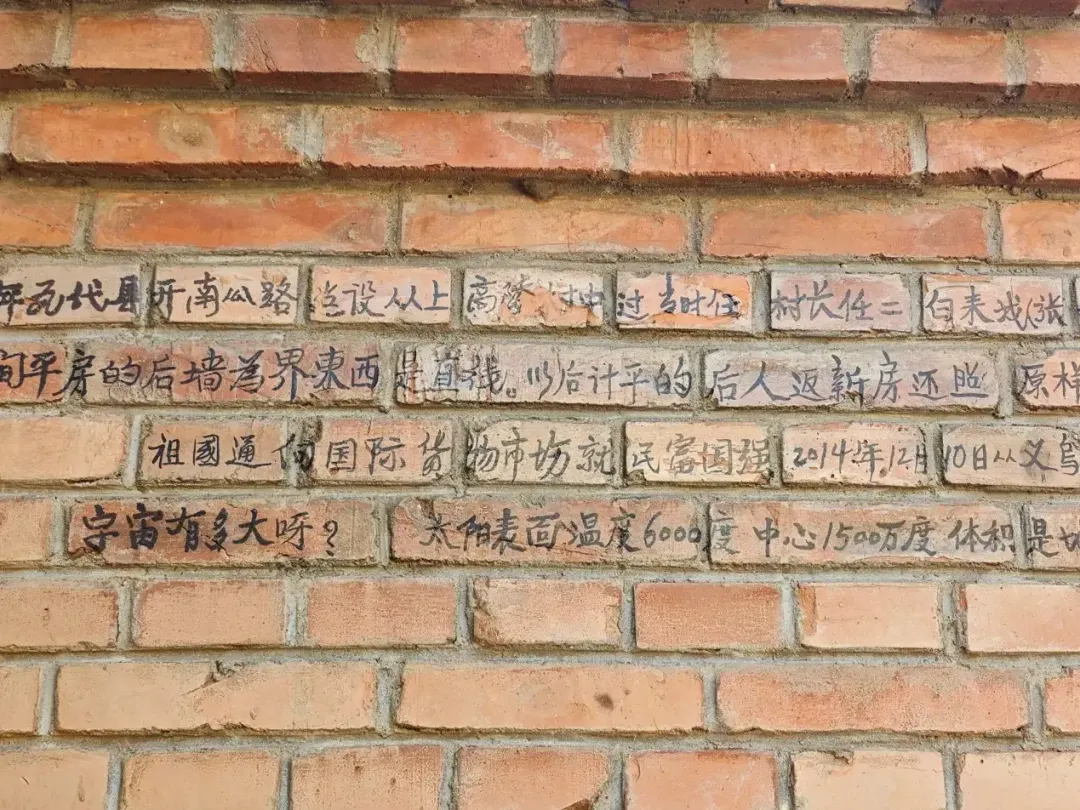 代县 南 路 设从上 高 村中过当时任 村长任二 白 来 张
间平房的后墙為界東西是直线。以后计平的后人返新房还照原样
祖國通向国际货物市场就民富国强2014年12月10日从义乌
宇宙有多大呀? 太阳表面温度6000度 中心1500万度 体积是